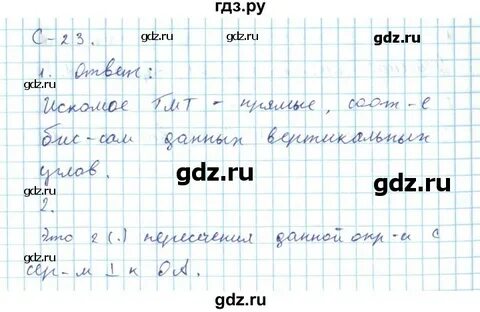 гдз.ру
С-23. gdz.ru gdz.ru
1. Ответ:
Искомое ГМТ - прямые, соот-е
gdz.ru gdz.ru
бис-сам данных вертикальных
углов. gdz.ru
2. gdz.ru
Это 2 (.) пересечения данной окр-и с
gdz.ru gdz.ru
сер-м ⊥ к OA.
gdz.ru